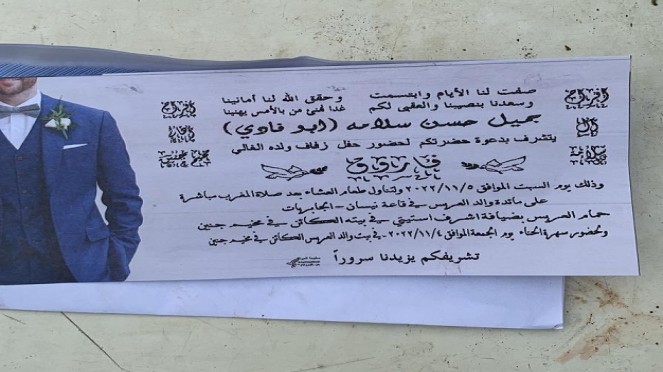 صفت لنا الأيام وابتسمت وحقق الله لنا أمانينا
وسعدنا بنصيبنا والعقبى لكم غدا
أفراح أفراح
جميل حسن سلامه (ابو فادي)
آل
يتشرف بدعوة حضرتكم لحضور حفل زفاف ولده الغالي
فاروق
وذلك يوم السبت الموافق ٢٠٢٢/١١/٥ ولتناول طعام العشاء بعد صلاة المغرب مباشرة
على مائدة والد العريس في قاعة نيسان - الجابريات
حمام العريس بضيافة اشرف استيتي في بيته الكائن في مخيم جنين
ولحضور سهرة الحناء يوم الجمعة الموافق ٢٠٢٢/١١/٤ - في بيت والد العريس الكائن في مخيم جنين
تشريفكم يزيدنا سروراً